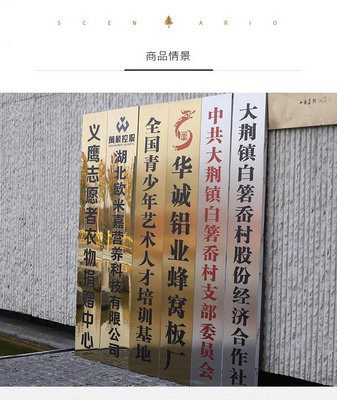 SCEN ARIO
商品情景
义鹰志愿者衣物捐赠中心
湖北欧米嘉营养科技有限公司
全国青少年艺术人才培训基地
华诚铝业蜂窝板厂
中共大荆镇白箬岙村支部委员会
大荆镇白箬岙村股份经济合作社